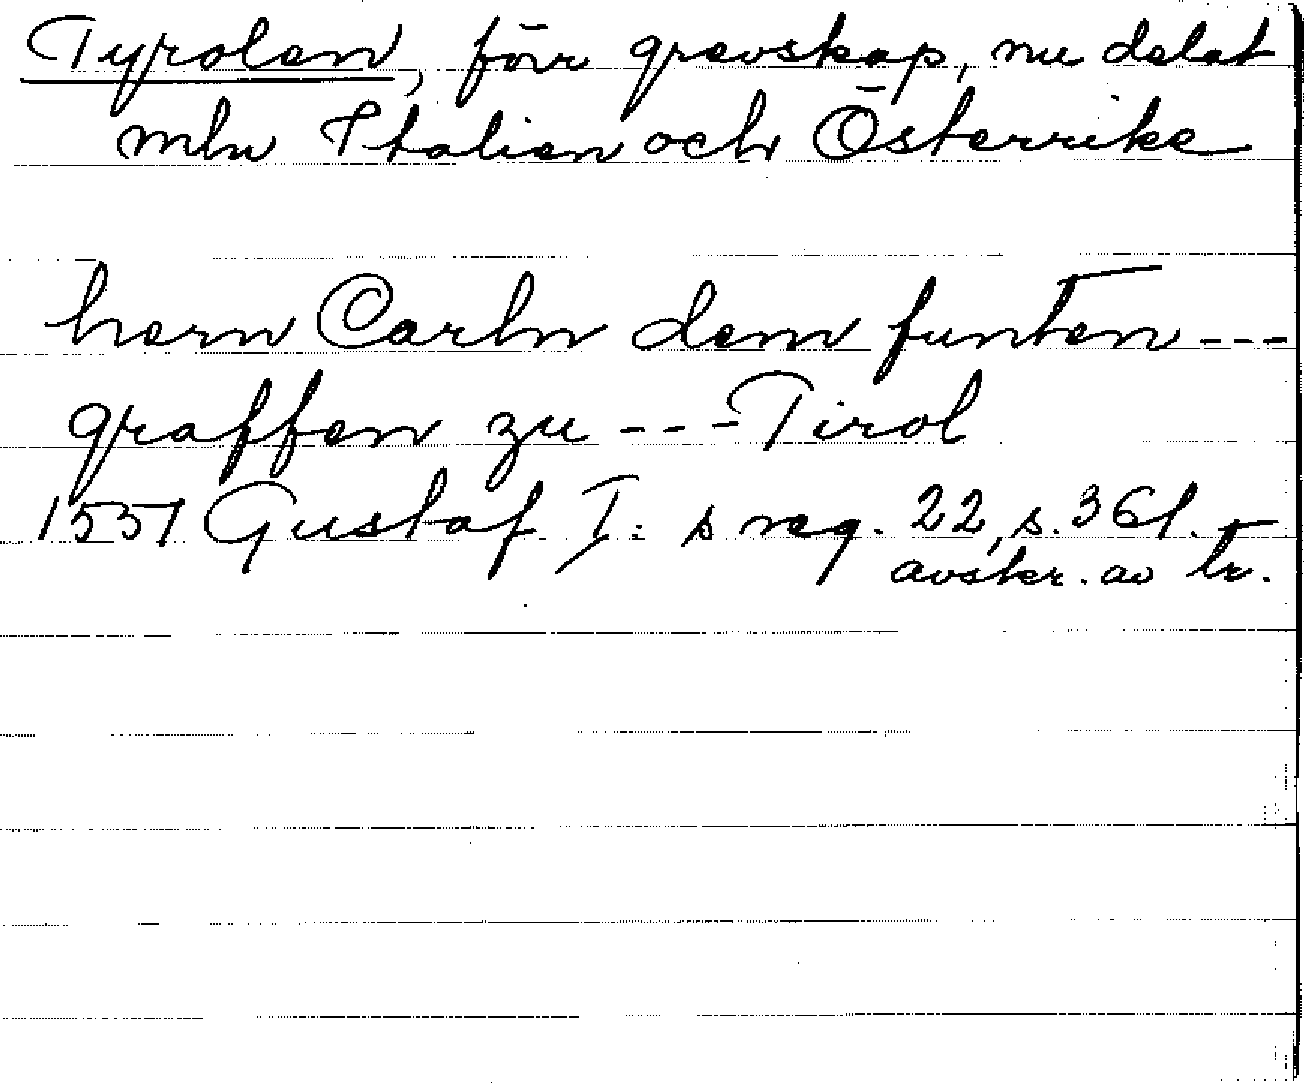 Tyrolen, förr grevskap, nu delat
mln Italien och Österrike
hern Carln dem funten ---
graffen zu --- Tirol
1551 Gustaf I:s reg. 22, s. 361.
avskr. av tr.